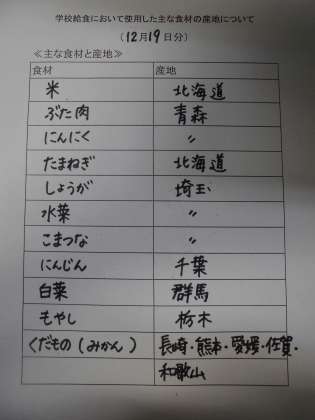 学校給食において使用した主な食材の産地について
(12月19日分)
≪主な食材と産地≫
食材 産地
米 北海道
ぶた肉 青森
にんにく 〃
たまねぎ 北海道
しょうが 埼玉
水菜 〃
こまつな 〃
にんじん 千葉
白菜 群馬
もやし 栃木
くだもの(みかん) 長崎・熊本・愛媛・佐賀・
和歌山